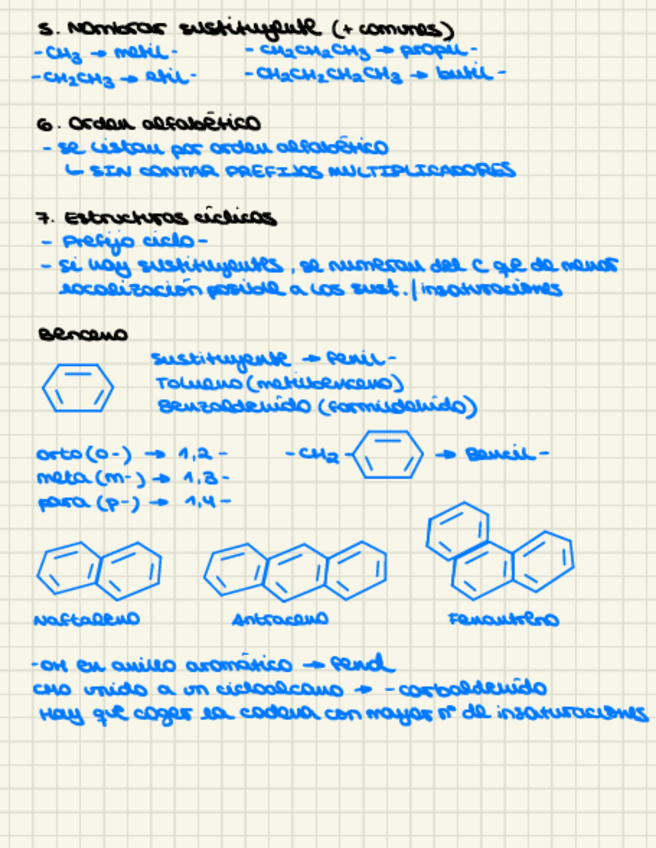 5. Nombrar sustituyente (+ comunes)
- CH3 → metil -    - CH2CH2CH3 → propil -
- CH2CH3 → etil -    - CH2CH2CH2CH3 → butil -
6. Orden alfabético
- se listan por orden alfabético
↳ SIN CONTAR PREFIJOS MULTIPLICADORES
7. Estructuras cíclicas
- Prefijo ciclo -
- si hay sustituyentes, se numeran del C que de menor
localización posible a los sust. / insaturaciones
Benceno
Sustituyente → fenil -
Tolueno (metilbenceno)
Benzaldehído (formildehido)
orto (o-) → 1,2 -    - CH2 - → Bencil -
meta (m-) → 1,3 -
para (p-) → 1,4 -
Naftaleno    Antraceno    Fenantreno
- OH en anillo aromático → fenol
CHO unido a un cicloalcano → - carbaldehído
Hay que coger la cadena con mayor nº de insaturaciones